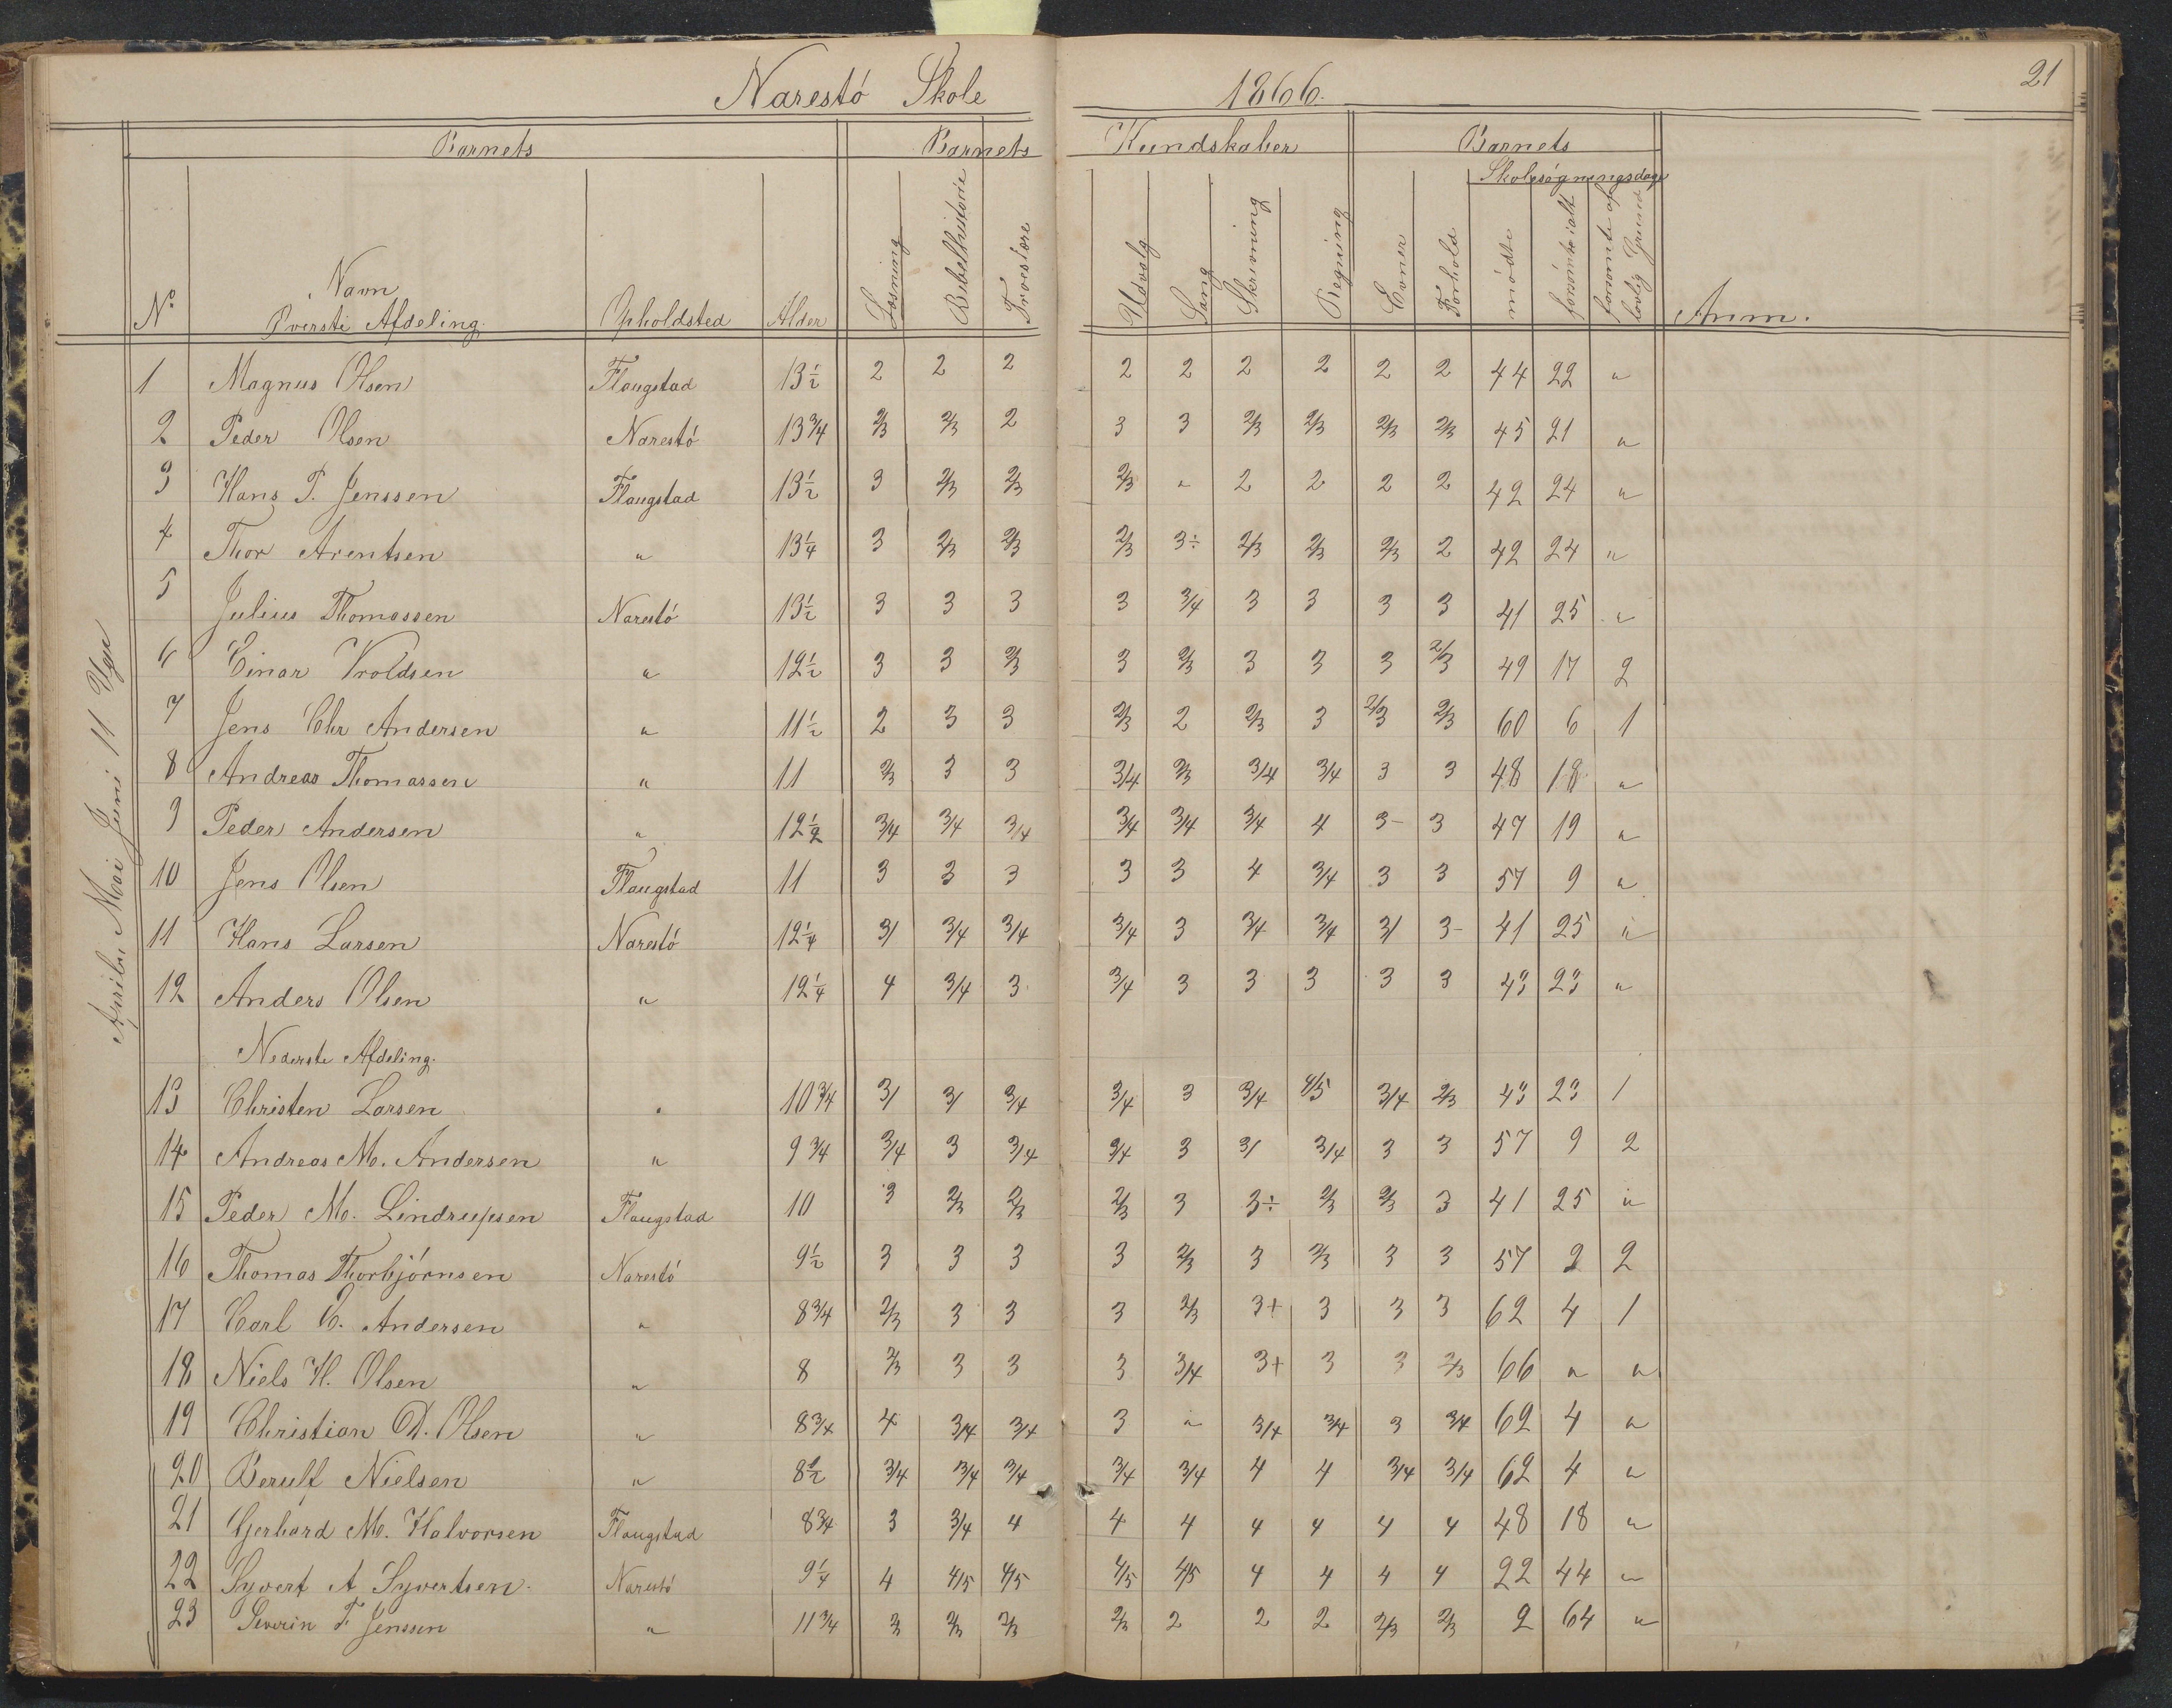 Narestö Skole 1866. 21
Barnets Barnets Kundskaber Barnets
Skolesøgningsdage
No Navn Opholdsted Alder Læsning Bibelhistorie Troeslære Udvalg Sang Skrivning Regning Evner Forhold mødte forsömte ialt forsömte af lovlig Grund Anm.
Överste Afdeling.
Aprilr Mai Juni 11 Uger
1 Magnus Olsen Flaugstad 13½ 2 2 2 2 2 2 2 2 2 44 22 "
2 Peder Olsen Narestö 13¾ 2/3 2/3 2 3 3 2/3 2/3 2/3 2/3 45 21 "
3 Hans P. Jenssen Flaugstad 13½ 3 2/3 2/3 2/3 " 2 2 2 2 42 24 "
4 Thor Arentsen " 13¼ 3 2/3 2/3 2/3 3÷ 2/3 2/3 2/3 2 42 24 "
5 Julius Thomassen Narestö 13½ 3 3 3 3 3/4 3 3 3 3 41 25 "
6 Einar Vroldsen " 12½ 3 3 2/3 3 2/3 3 3 3 2/3 49 17 2
7 Jens Chr Andersen " 11½ 2 3 3 2/3 2 2/3 3 2/3 2/3 60 6 1
8 Andreas Thomassen " 11 2/3 3 3 3/4 2/3 3/4 3/4 3 3 48 18 "
9 Peder Andersen " 12½ 3/4 3/4 3/4 3/4 3/4 3/4 4 3- 3 47 19 "
10 Jens Olsen Flaugstad 11 3 3 3 3 3 4 3/4 3 3 57 9 "
11 Hans Larsen Narestö 12¼ 3/ 3/4 3/4 3/4 3 3/4 3/4 3/ 3- 41 25 "
12 Anders Olsen " 12¼ 4 3/4 3 3/4 3 3 3 3 3 43 23 "
Nederste Afdeling.
13 Christen Larsen " 10¾ 3/ 3/ 3/4 3/4 3 3/4 4/5 3/4 2/3 43 23 1
14 Andreas M. Andersen " 9¾ 3/4 3 3/4 3/4 3 3/ 3/4 3 3 57 9 2
15 Peder M. Lindrupsen Flaugstad 10 3 2/3 2/3 2/3 3 3÷ 2/3 2/3 3 41 25 "
16 Thomas Thorbjörnsen Narestö 9½ 3 3 3 3 2/3 3 2/3 3 3 57 9 2
17 Carl C. Andersen " 8¾ 2/3 3 3 3 2/3 3+ 3 3 3 62 4 1
18 Niels H. Olsen " 8 2/3 3 3 3 3/4 3+ 3 3 2/3 66 " "
19 Christian D. Olsen " 8¾ 4 3/4 3/4 3 " 3/4 3/4 3 3/4 62 4 "
20 Berulf Nielsen " 8½ 3/4 3/4 3/4 3/4 3/4 4 4 3/4 3/4 62 4 "
21 Gerhard M. Halvorsen Flaugstad 8¾ 3 3/4 4 4 4 4 4 4 4 48 18 "
22 Syvert A Syvertsen. Narestö 9¼ 4 4/5 4/5 4/5 4/5 4 4 4 4 22 44 "
23 Severin F. Jenssen " 11¾ 2/3 2/3 2/3 2/3 2 2 2 2/3 2/3 2 64 "